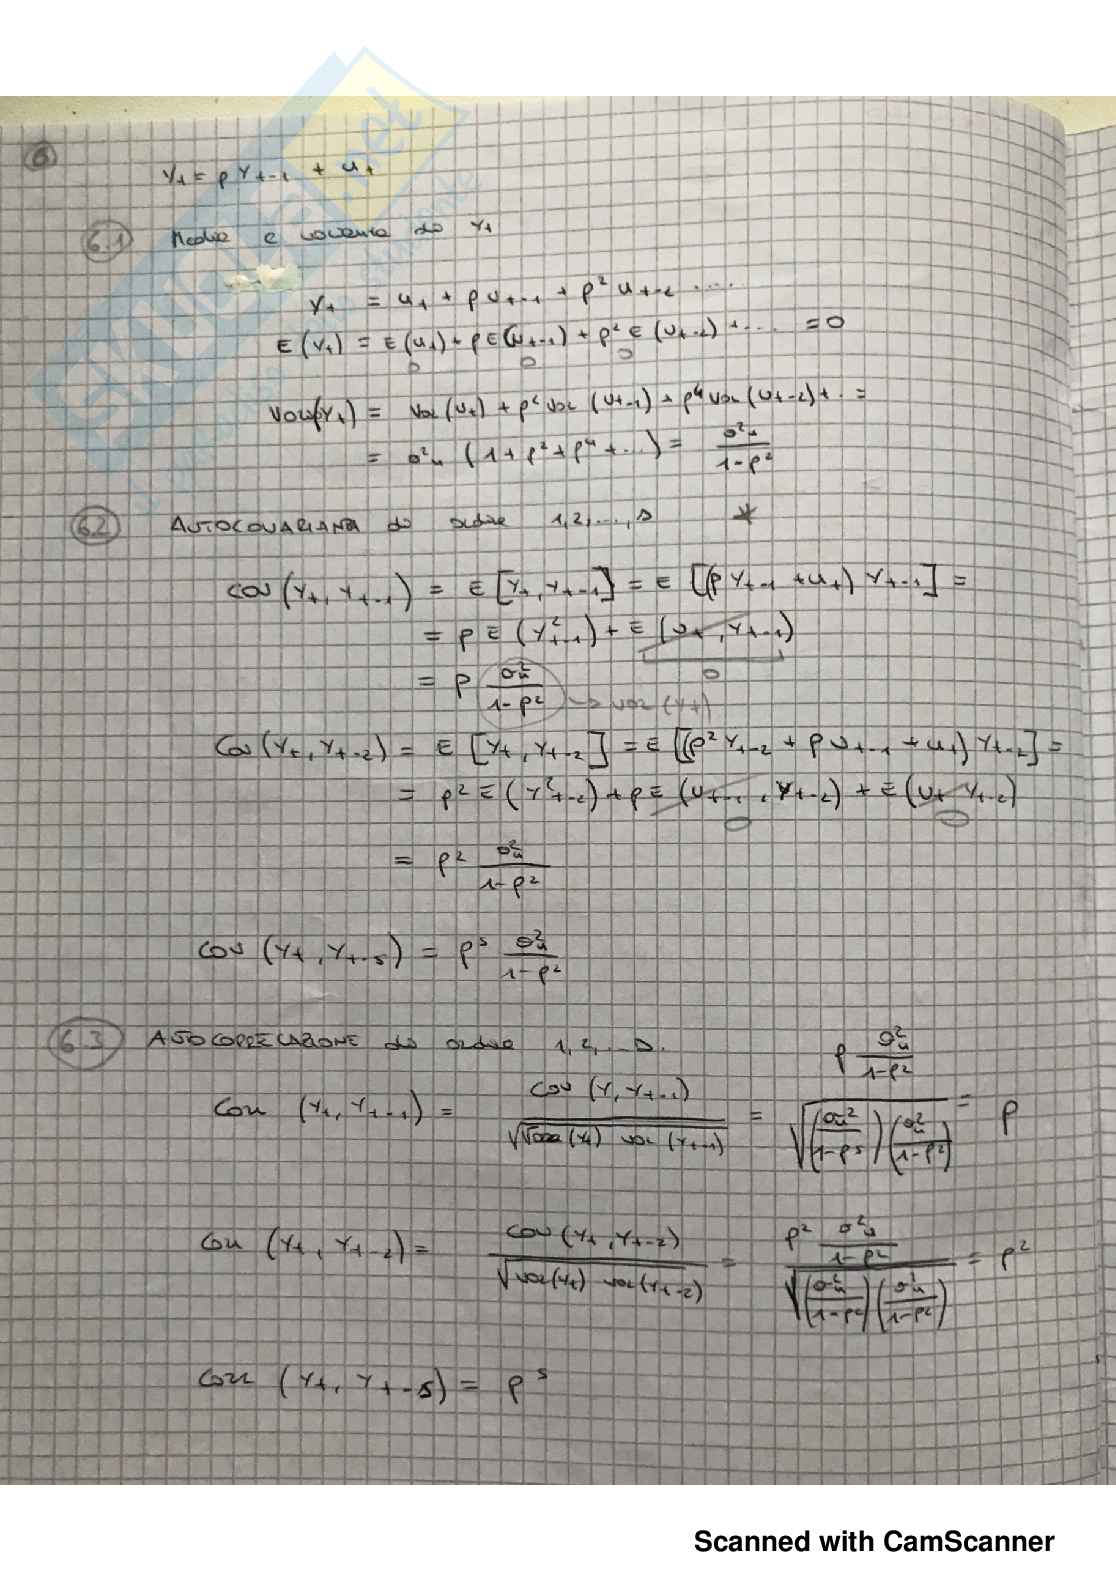 6
Y_t = ρ Y_{t-1} + u_t
6.1 Media e varianza di Y_t
Y_t = u_t + ρ u_{t-1} + ρ² u_{t-2} ....
E(Y_t) = E(u_t) + ρ E(u_{t-1}) + ρ² E(u_{t-2}) + .... = 0
0 0 0
var(Y_t) = var(u_t) + ρ² var(u_{t-1}) + ρ⁴ var(u_{t-2}) + . =
= σ²u (1 + ρ² + ρ⁴ + ...) = σ²u / (1-ρ²)
6.2 AUTOCOVARIANZA di ordine 1, 2, ..., s *
cov(Y_t, Y_{t-1}) = E[Y_t, Y_{t-1}] = E[(ρ Y_{t-1} + u_t) Y_{t-1}] =
= ρ E(Y²_{t-1}) + E(u_t, Y_{t-1})
0
= ρ σ²u / (1-ρ²) → var(Y_t)
Cov(Y_t, Y_{t-2}) = E[Y_t, Y_{t-2}] = E[(ρ² Y_{t-2} + ρ u_{t-1} + u_t) Y_{t-2}] =
= ρ² E(Y²_{t-2}) + ρ E(u_{t-1}, Y_{t-2}) + E(u_t Y_{t-2})
0 0
= ρ² σ²u / (1-ρ²)
cov(Y_t, Y_{t-s}) = ρ^s σ²u / (1-ρ²)
6.3 AUTOCORRELAZIONE di ordine 1, 2, ... s.
Corr (Y_t, Y_{t-1}) = cov(Y, Y_{t-1}) / √(var(Y_t) var(Y_{t-1})) = ρ σ²u / (1-ρ²) / √((σu² / (1-ρ²)) (σ²u / (1-ρ²))) = ρ
Corr (Y_t, Y_{t-2}) = cov(Y_t, Y_{t-2}) / √(var(Y_t) var(Y_{t-2})) = ρ² σ²u / (1-ρ²) / √((σ²u / (1-ρ²)) (σ²u / (1-ρ²))) = ρ²
corr (Y_t, Y_{t-s}) = ρ^s
Scanned with CamScanner